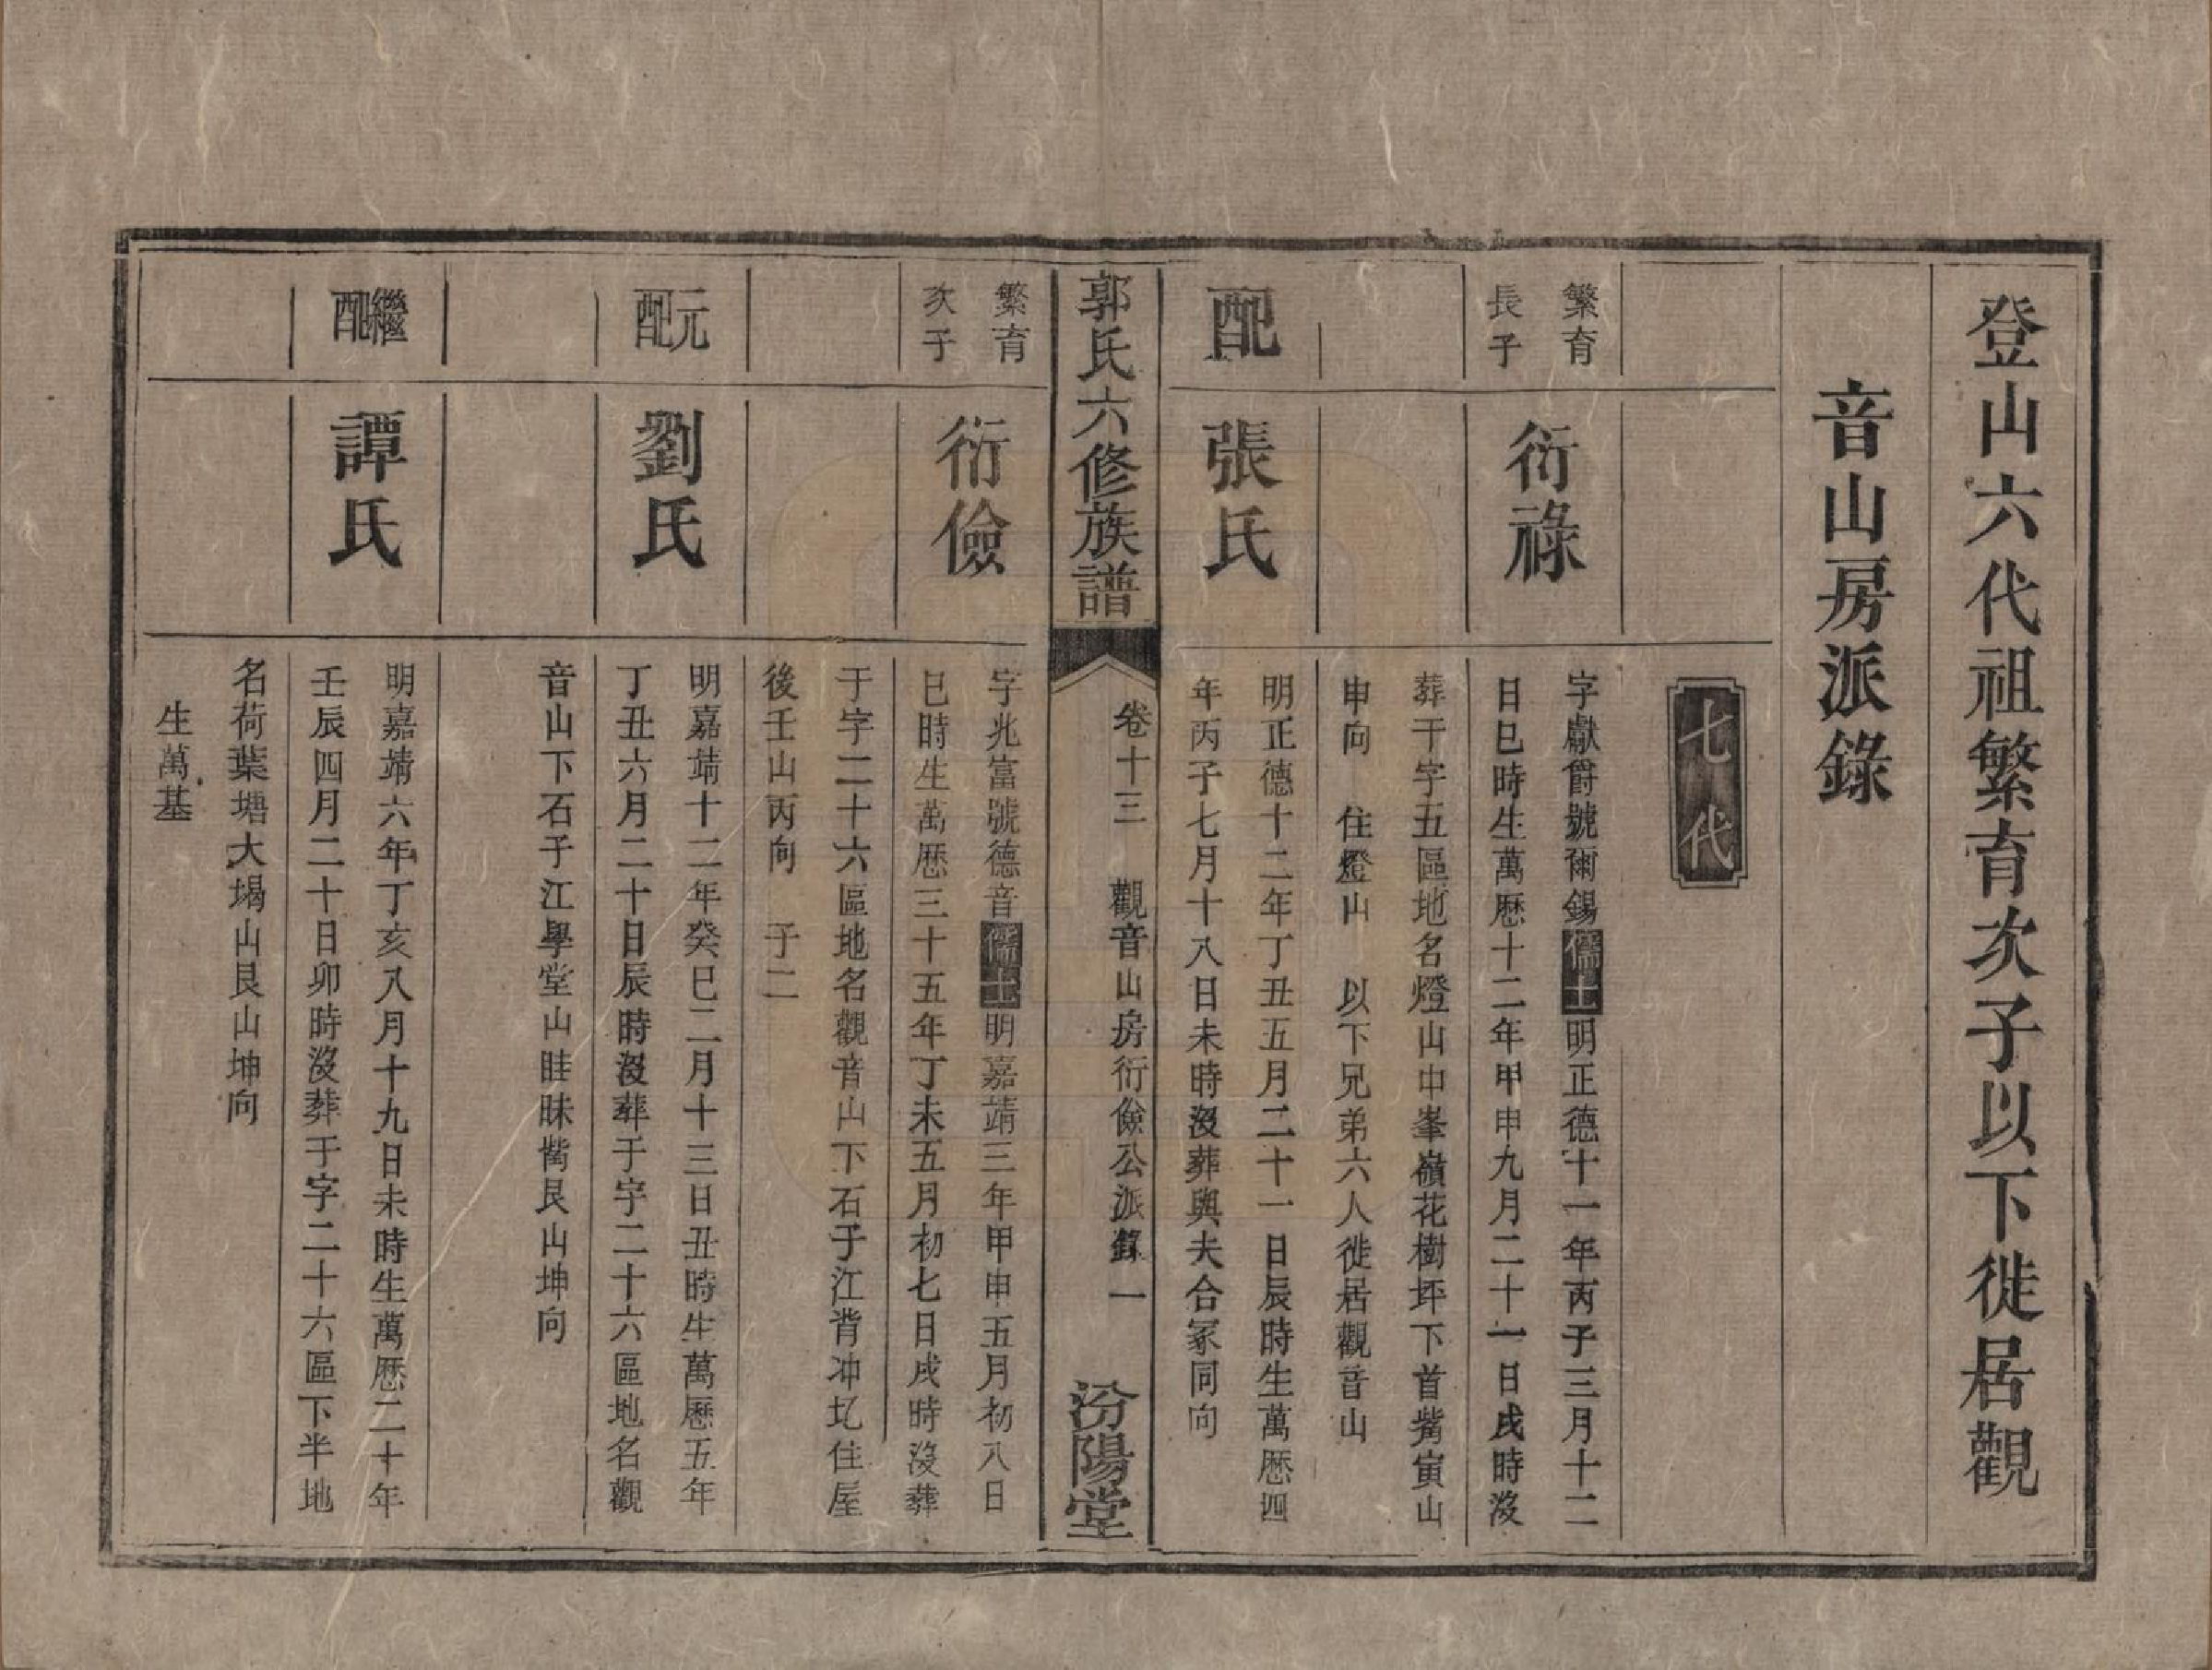 登山六代祖繁育次子以下徙居觀
音山房派錄
七代
繁育
長子
衍祿
字獻爵號爾錫儒士明正德十一年丙子三月十二
日巳時生萬歷十二年甲申九月二十一日戌時沒
葬于字五區地名燈山中峯嶺花樹坪下首觜寅山
申向 住燈山 以下兄弟六人徙居觀音山
配
張氏
明正德十二年丁丑五月二十一日辰時生萬歷四
年丙子七月十八日未時沒葬與夫合冢同向
郭氏六修族譜
卷十三 觀音山房衍儉公派錄 一
汾陽堂
繁育
次子
衍儉
字兆富號德音儒士明嘉靖三年甲申五月初八日
巳時生萬歷三十五年丁未五月初七日戌時沒葬
于字二十六區地名觀音山下石子江背冲圠住屋
後壬山丙向 子二
元配
劉氏
明嘉靖十二年癸巳二月十三日丑時生萬歷五年
丁丑六月二十日辰時沒葬于字二十六區地名觀
音山下石子江學堂山眭眜觜艮山坤向
繼配
譚氏
明嘉靖六年丁亥八月十九日未時生萬歷二十年
壬辰四月二十日卯時沒葬于字二十六區下半地
名荷葉塘大塌山艮山坤向
生萬基